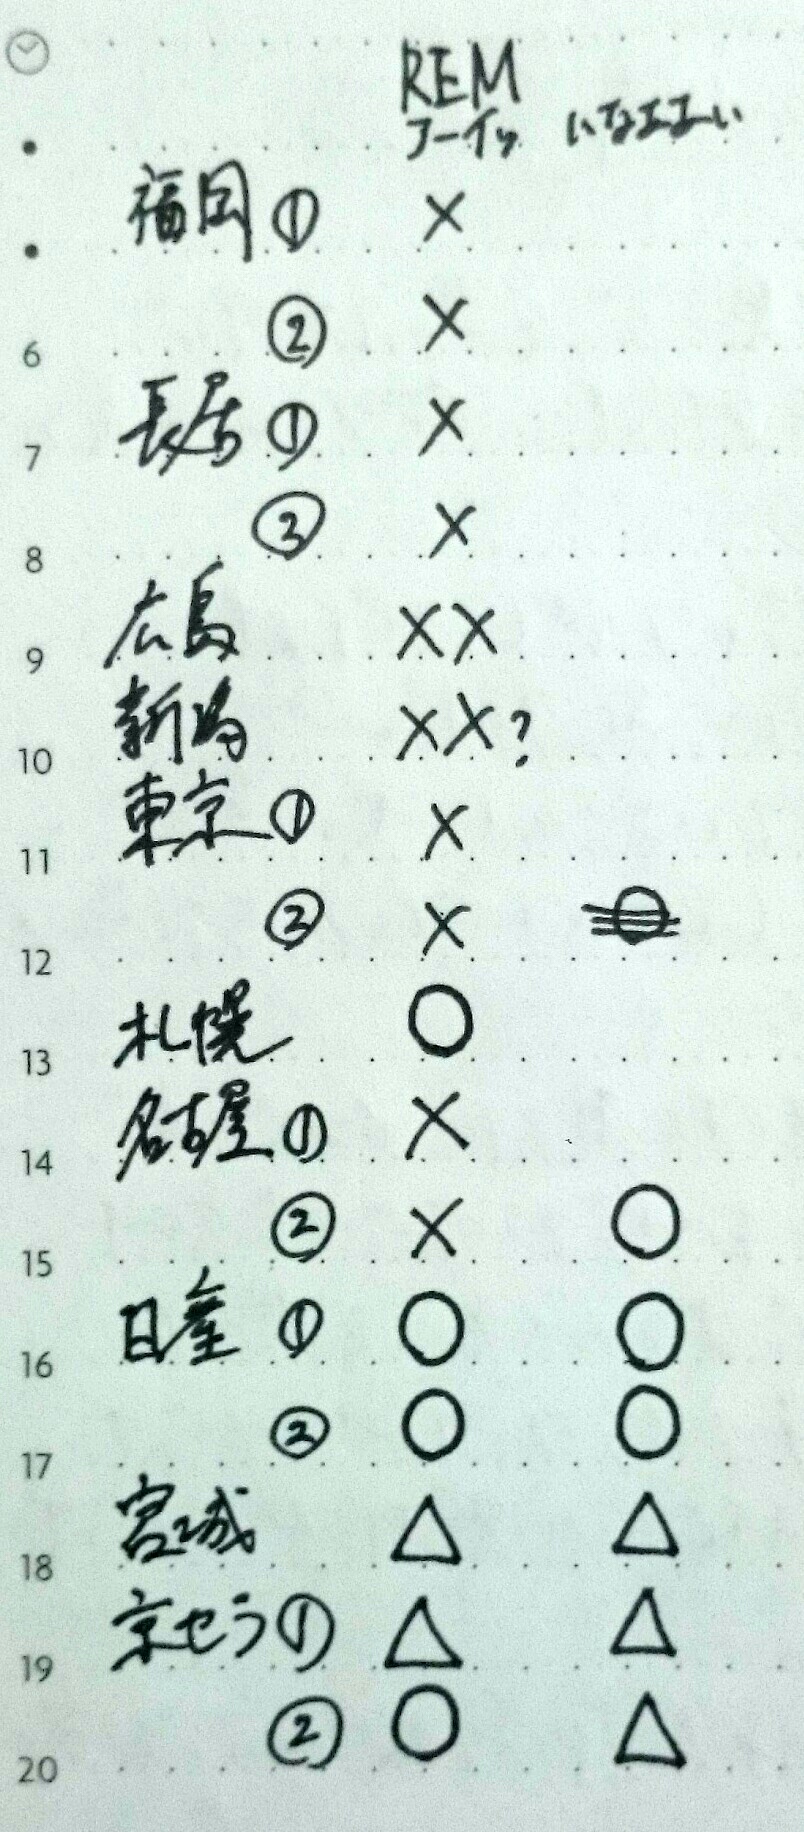 REM
フーイッ いなずまい
福岡 ① ×
6 ② ×
7 長居 ① ×
8 ② ×
9 広島 ××
10 新潟 ××?
11 東京 ① ×
12 ② ×
13 札幌 ○
14 名古屋 ① ×
15 ② × ○
16 日産 ① ○ ○
17 ② ○ ○
18 宮城 △ △
19 京セラ ① △ △
20 ② ○ △